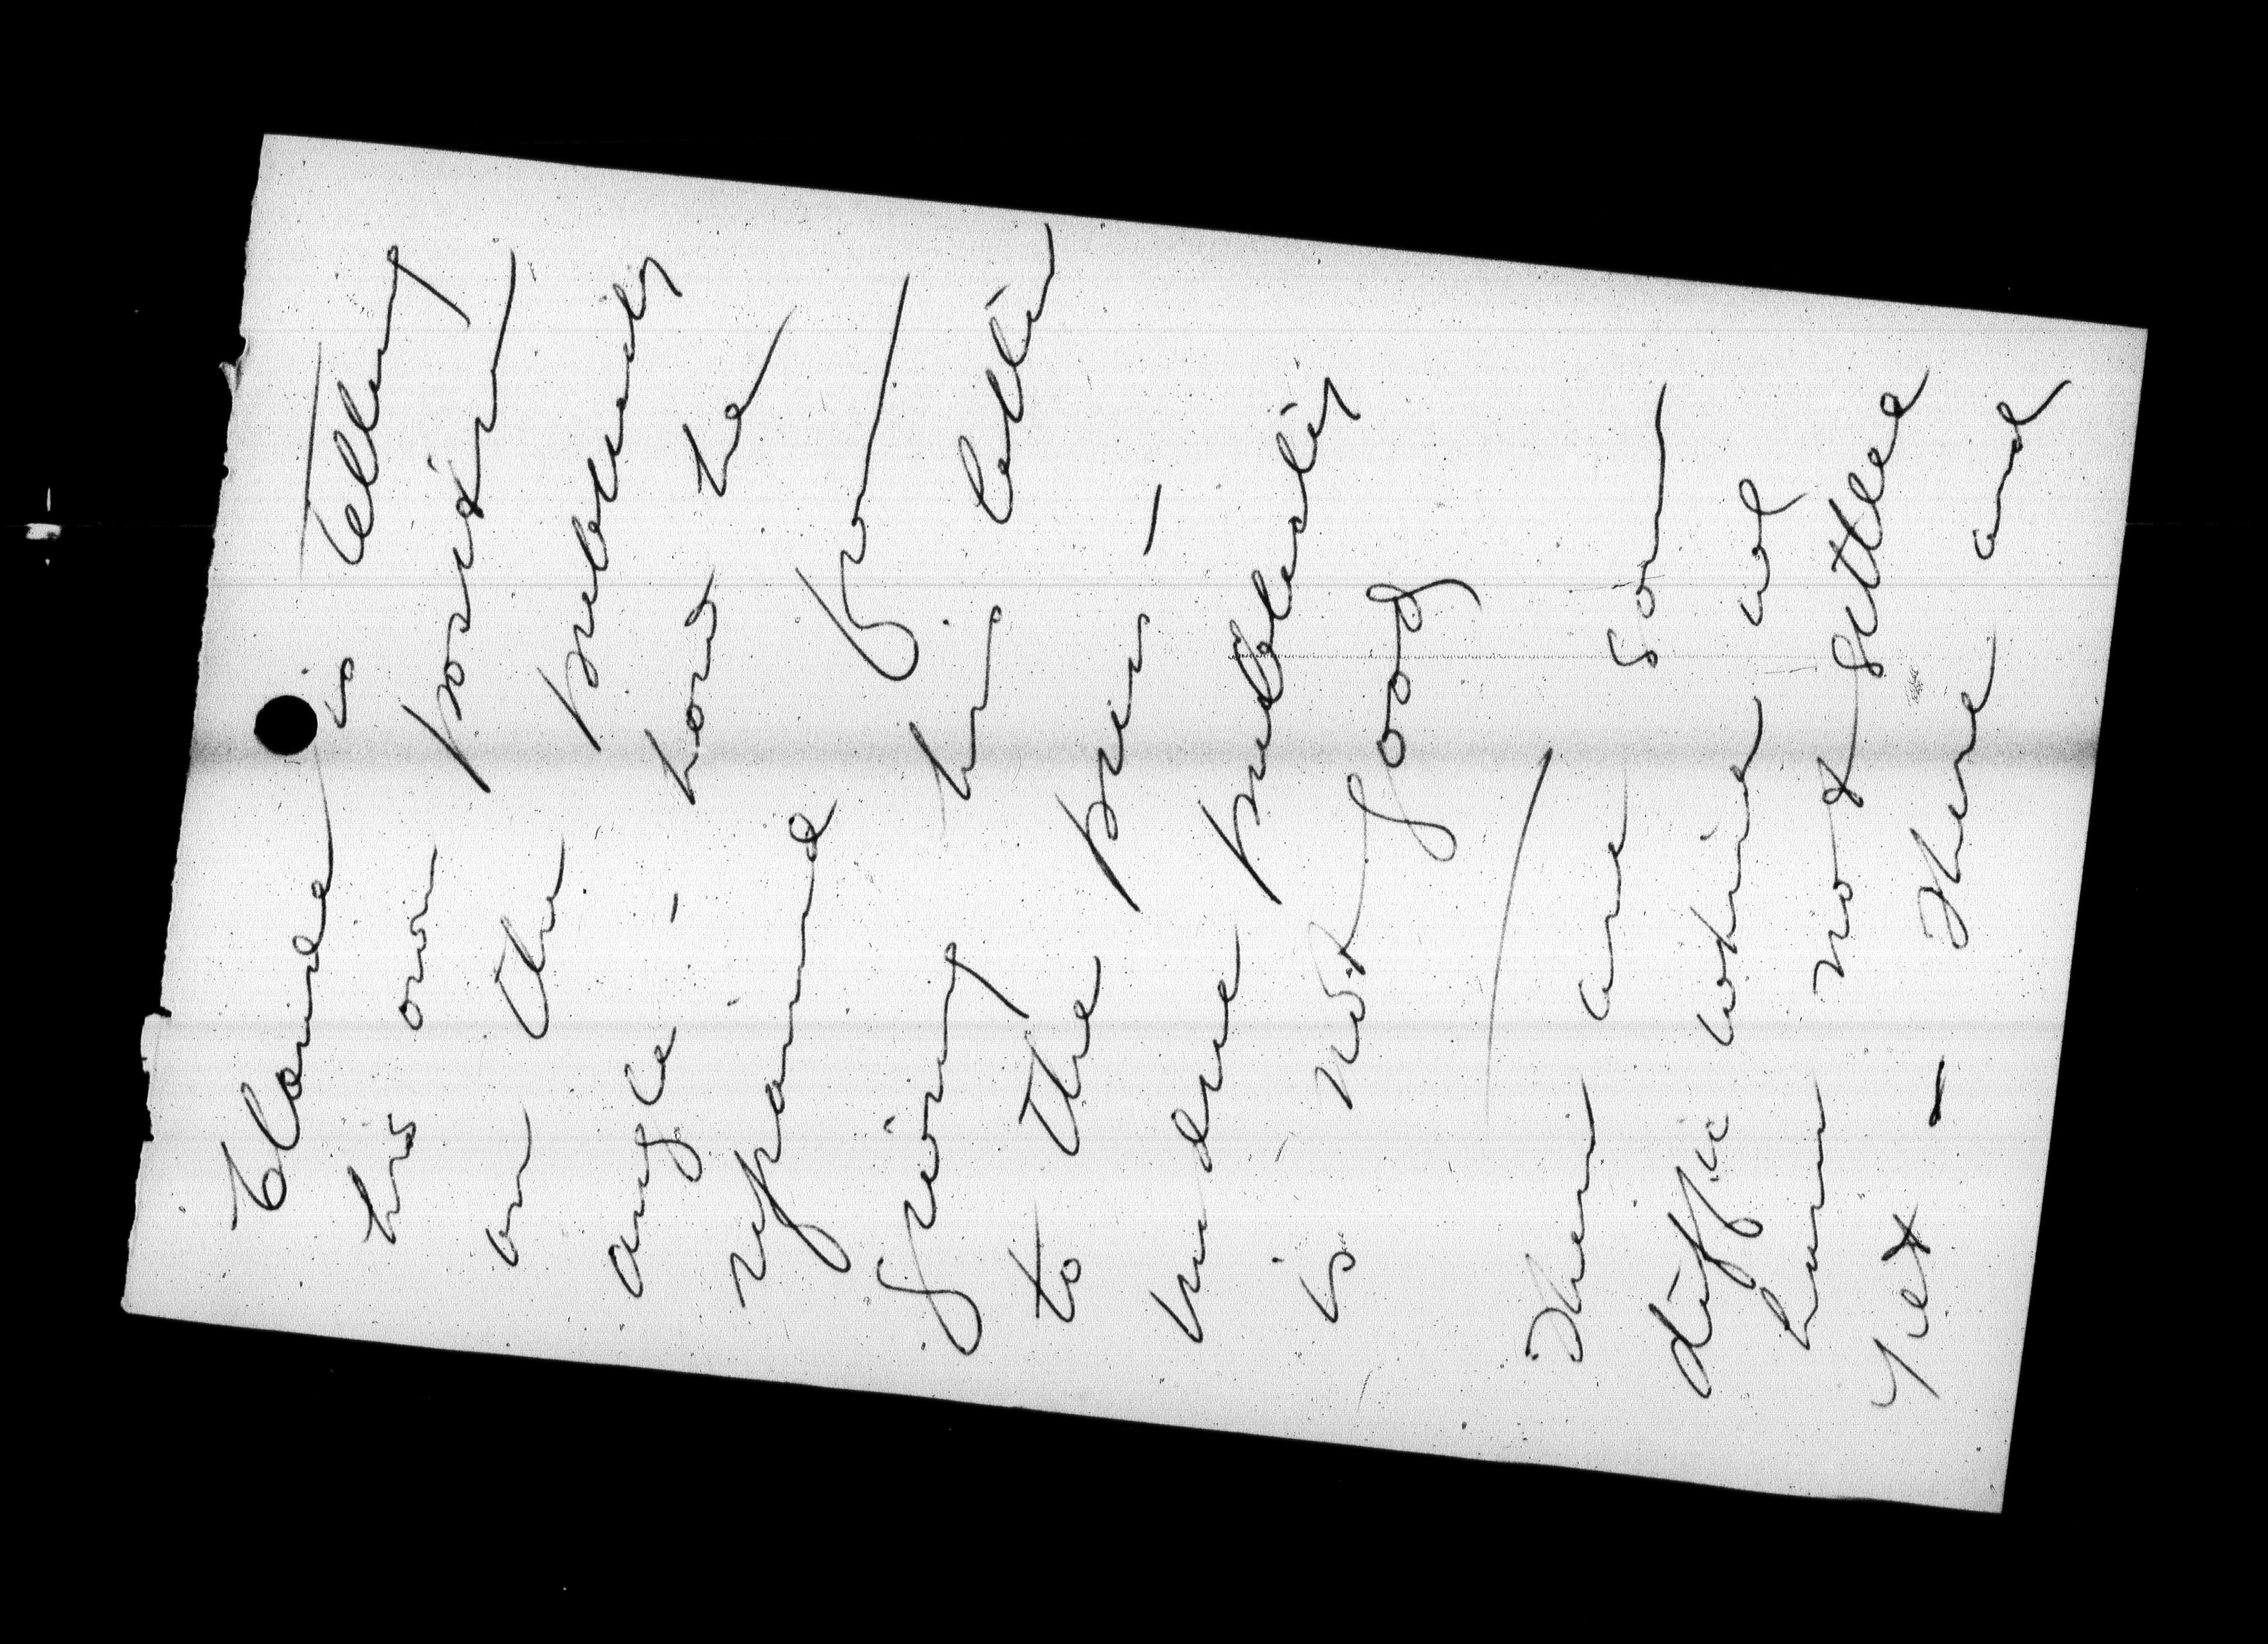 Claude is telling
his own position
on the publicity
angle - how he
refrained from
giving his letter
to the press -
undue publicity
is not good
There are some
diffic which
not settled
yet - There and